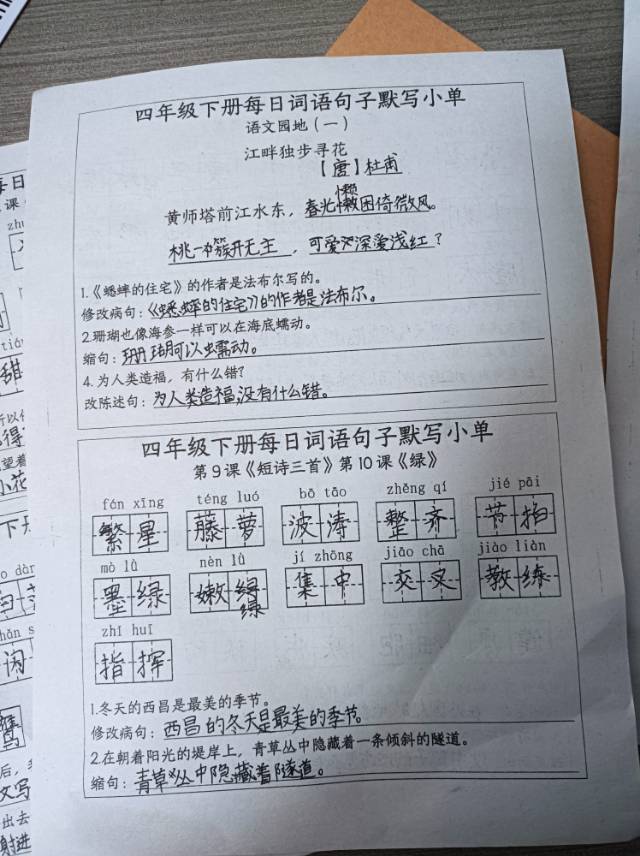 四年级下册每日词语句子默写小单
语文园地（一）
江畔独步寻花
【唐】杜甫
黄师塔前江水东，春光懒困倚微风。
桃花一簇开无主，可爱深爱浅红？
1.《蟋蟀的住宅》的作者是法布尔写的。
修改病句：《蟋蟀的住宅》的作者是法布尔。
2.珊瑚也像海参一样可以在海底蠕动。
缩句：珊瑚可以蠕动。
4.为人类造福，有什么错？
改陈述句：为人类造福,没有什么错。
四年级下册每日词语句子默写小单
第9课《短诗三首》第10课《绿》
fán xīng téng luó bō tāo zhěng qí jié pāi
繁星 藤萝 波涛 整齐 节拍
mò lǜ nèn lǜ jí zhōng jiāo chā jiào liàn
墨绿 嫩绿 集中 交叉 教练
绿
zhǐ huī
指挥
1.冬天的西昌是最美的季节。
修改病句：西昌的冬天是最美的季节。
2.在朝着阳光的堤岸上，青草丛中隐藏着一条倾斜的隧道。
缩句：青草丛中隐藏着隧道。